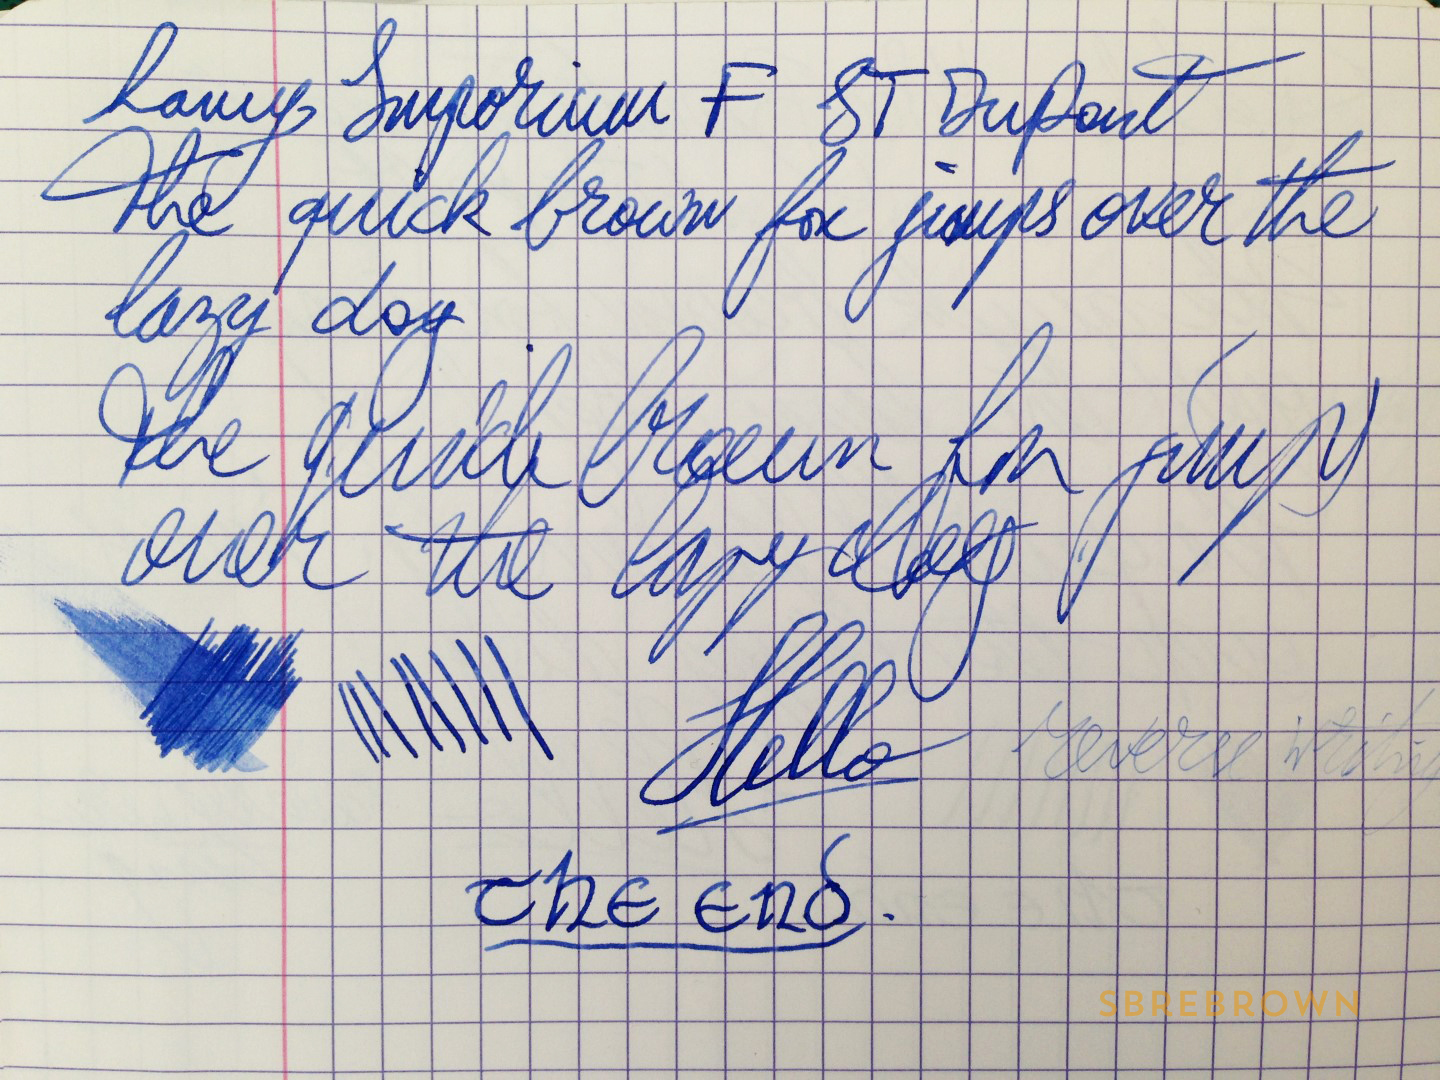 Lamy Imporium F ST Dupont
The quick brown fox jumps over the
lazy dog
The quick brown fox jumps
over the lazy dog
Hello
reverse writing
the end.
SBREBROWN